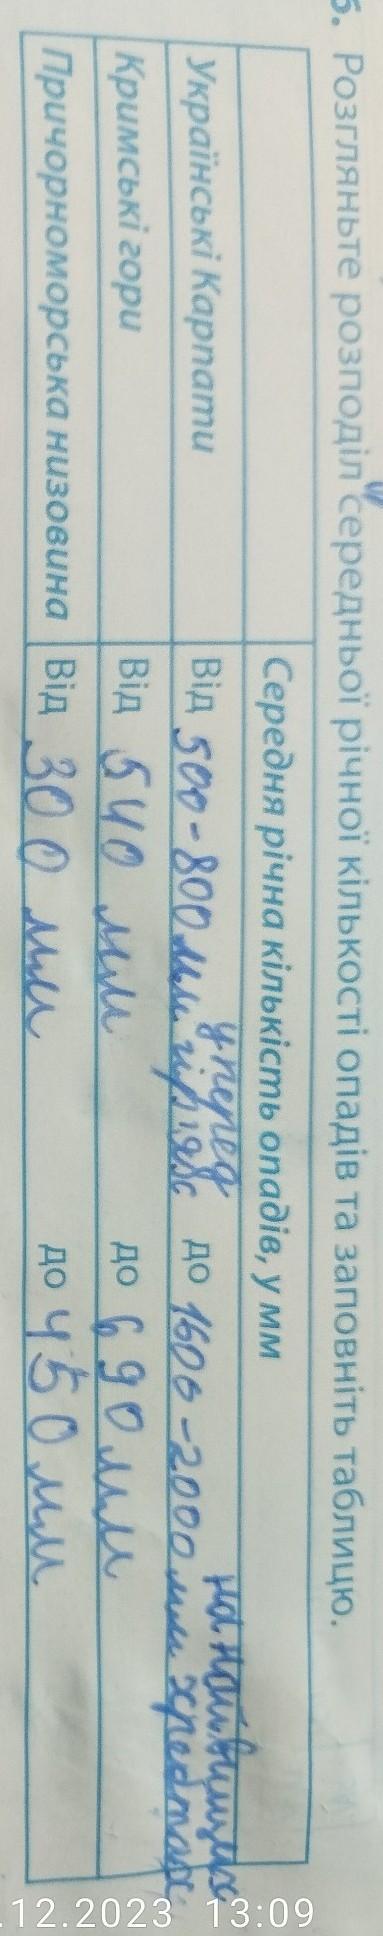 6. Розгляньте розподіл середньої річної кількості опадів та заповніть таблицю.
Середня річна кількість опадів, у мм
Українські Карпати Від 500-800 мм у перед гір'ях до 1600-2000 мм на найвищих хребтах
Кримські гори Від 540 мм до 690 мм
Причорноморська низовина Від 300 мм до 450 мм
.12.2023 13:09